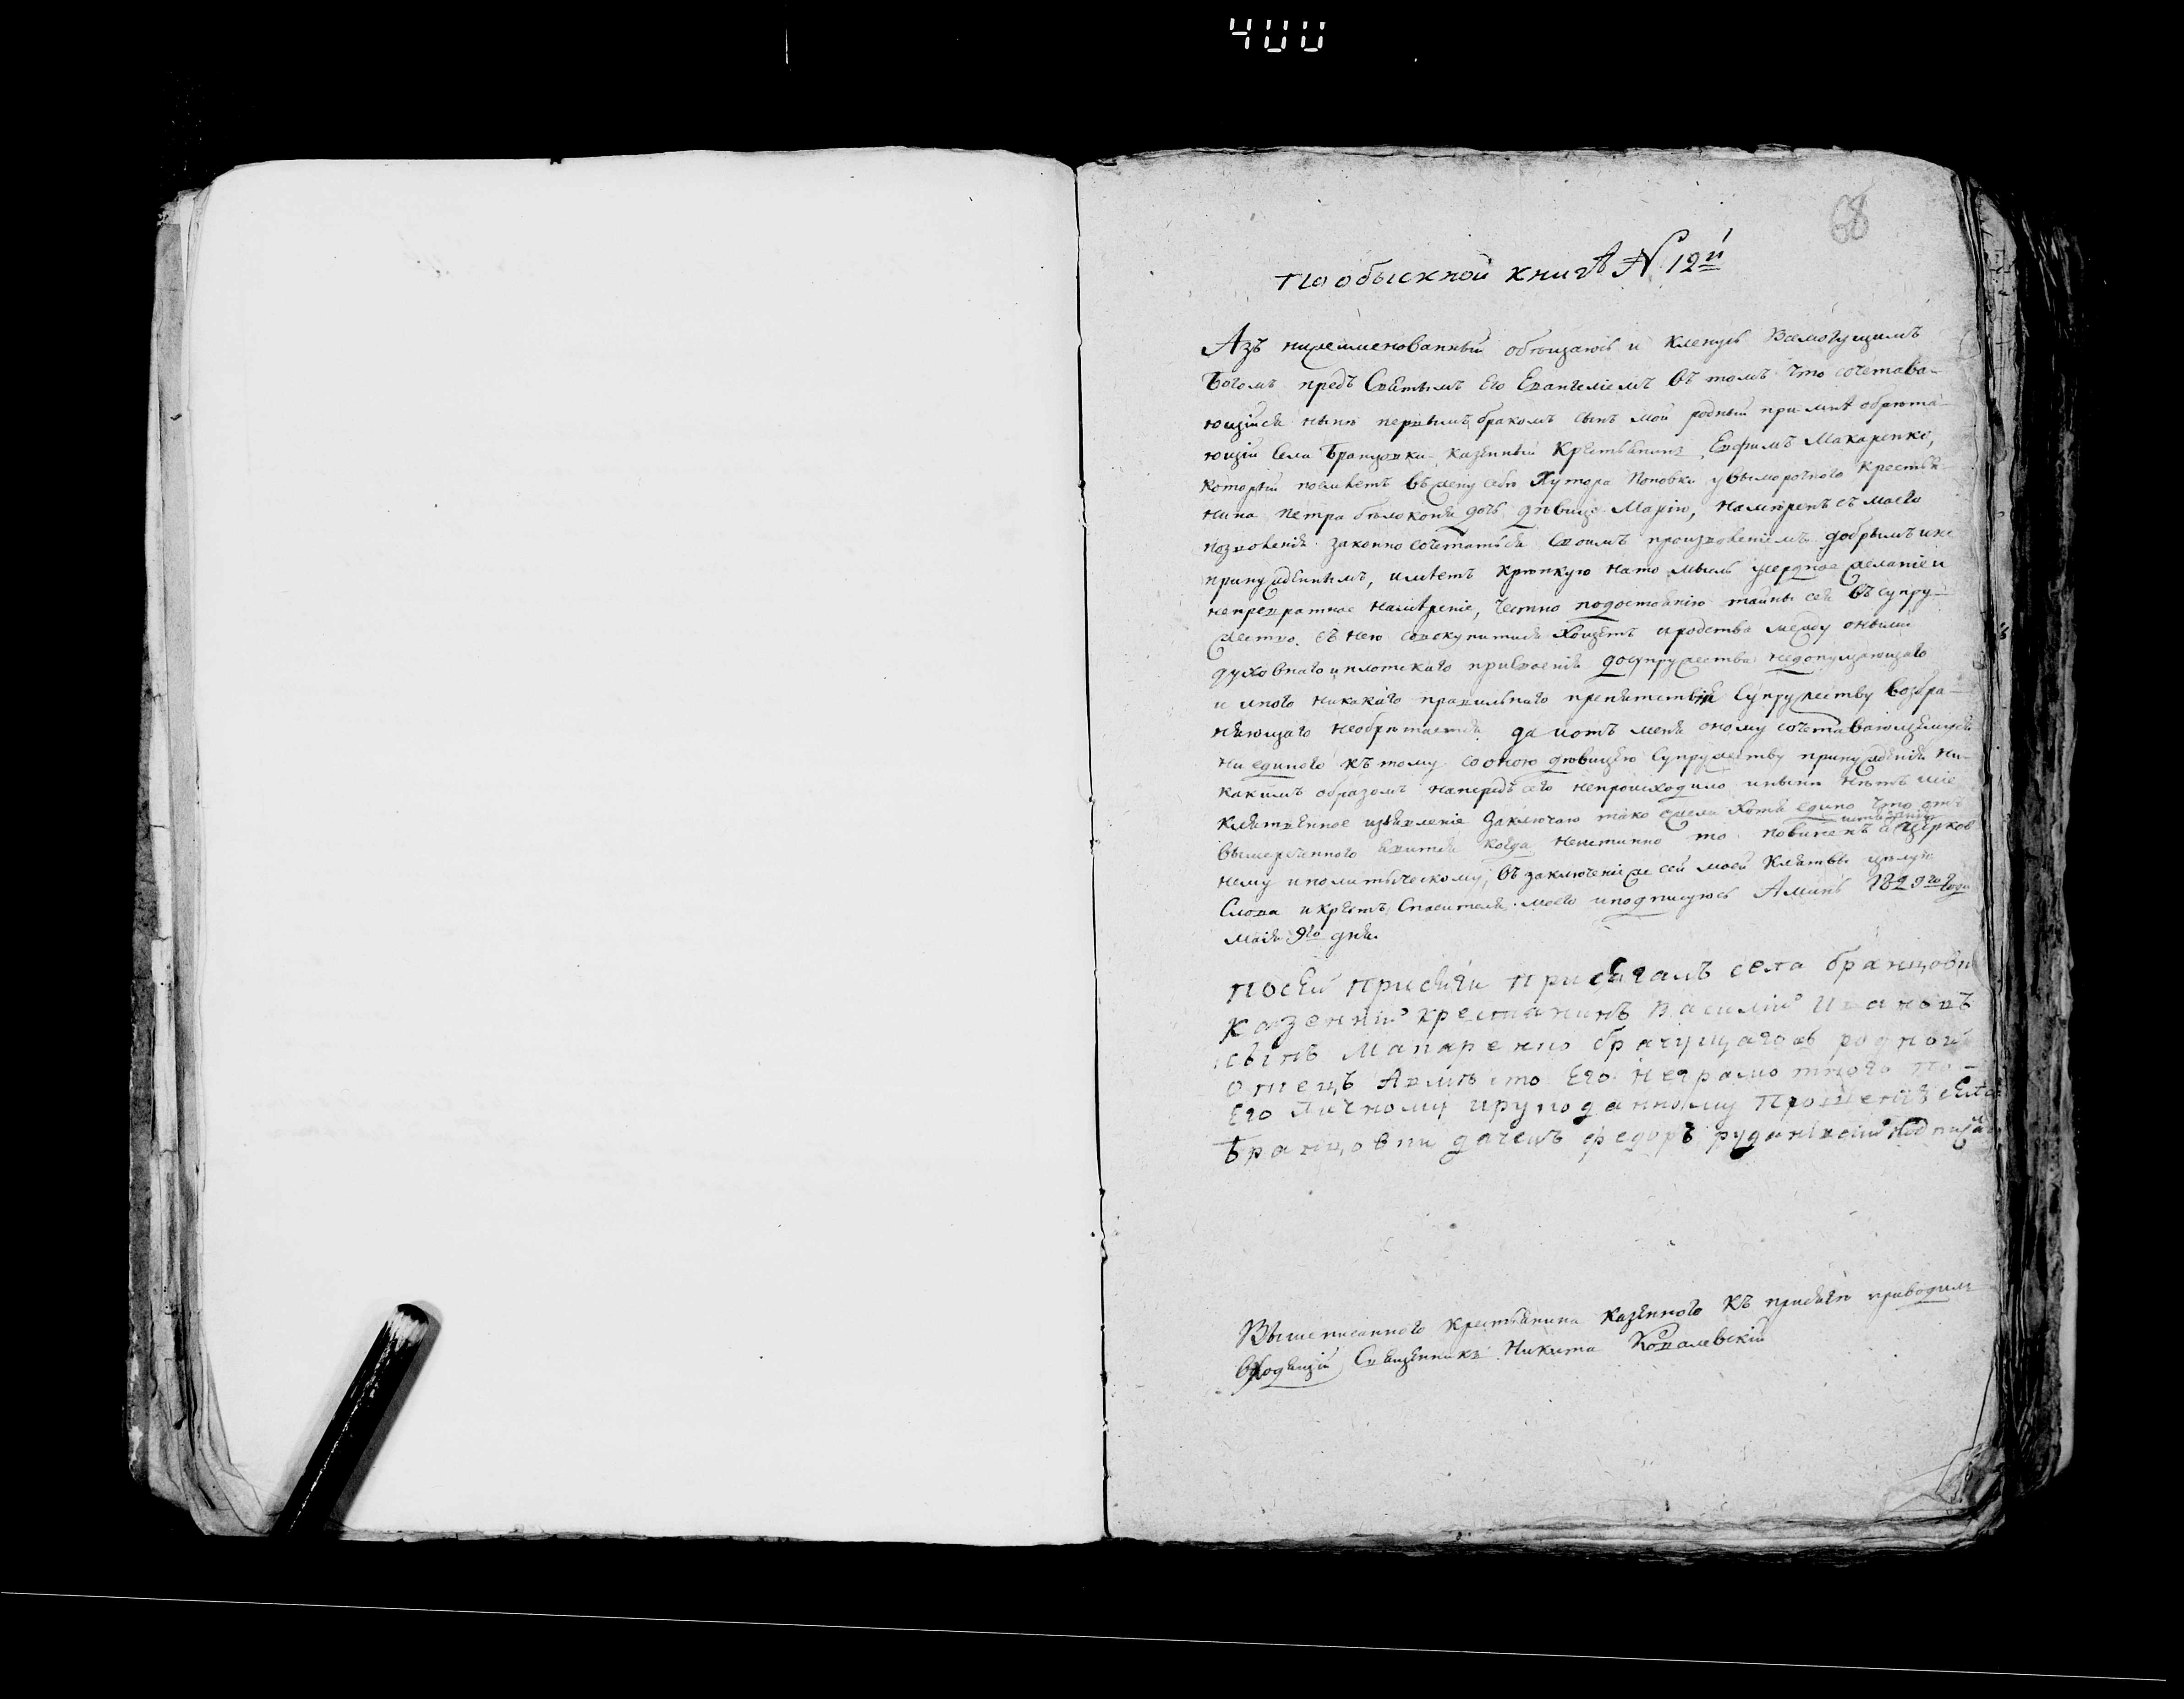 400
68
По обыскной книгѣ №. 12й
Азъ нижеимменованный обѣщаюсь и кленусь Всемогущимъ
Богомъ предъ Святымъ Его Евангеліемъ въ томъ что сочетава-
ющійся нынѣ первымъ бракомъ сынъ мой родный при мнѣ обрѣта-
ющій села Бранцовки казенный Крестьянинъ Евфимъ Макаренко,
который поемлетъ въ жену себѣ Хутора Поповки увыморочного крестья-
нина Петра бѣлоконя дочь дѣвицу Марію, намѣренъ съ моего
позволенія законно сочетаться своимъ произволеніемъ добрымъ и не
принужденнымъ, имѣетъ крѣпкую на то мысль усердное желаніе и
непревратное намѣреніе, честно по достоянію тайны сея въ супру-
жество съ нею совокупитися хощетъ и родства между оными
духовнаго и плотскаго присвоенія до супружества недопущающаго
и иного никакого правильнаго препятствія супружеству возбра-
няющаго необрѣтается да и отъ меня оному сочетавающемуся
ни единого къ тому со оною дѣвицею супружеству принужденія ни-
какимъ образомъ напередъ сего непроисходило и нынѣ нѣтъ сіе
клятвенное изъявленіе заключаю тако ежели хотя едино что отъ
вышереченного явится когда неистинно то повиненъ истязанію церков
нему и политическому, въ заключеніе же сей моей клятвы цѣлую
Слова и крестъ Спасителя моего и подписуюсь Аминь 1829го года
маія 9го дня.
по сей присяги присягалъ села бранцовки
казенній крестянинъ Василій Ивановъ
сынъ Макаренко брачущагося родной
отецъ Авмѣсто Его неграмотного по-
Его личному ирукоданному прошенію села
Бранцовки дячекъ федоръ руданівскій подписалъ
Вышеписанного крестьянина казенного къ присягѣ приводилъ
Священникъ Никита Ковалевскій